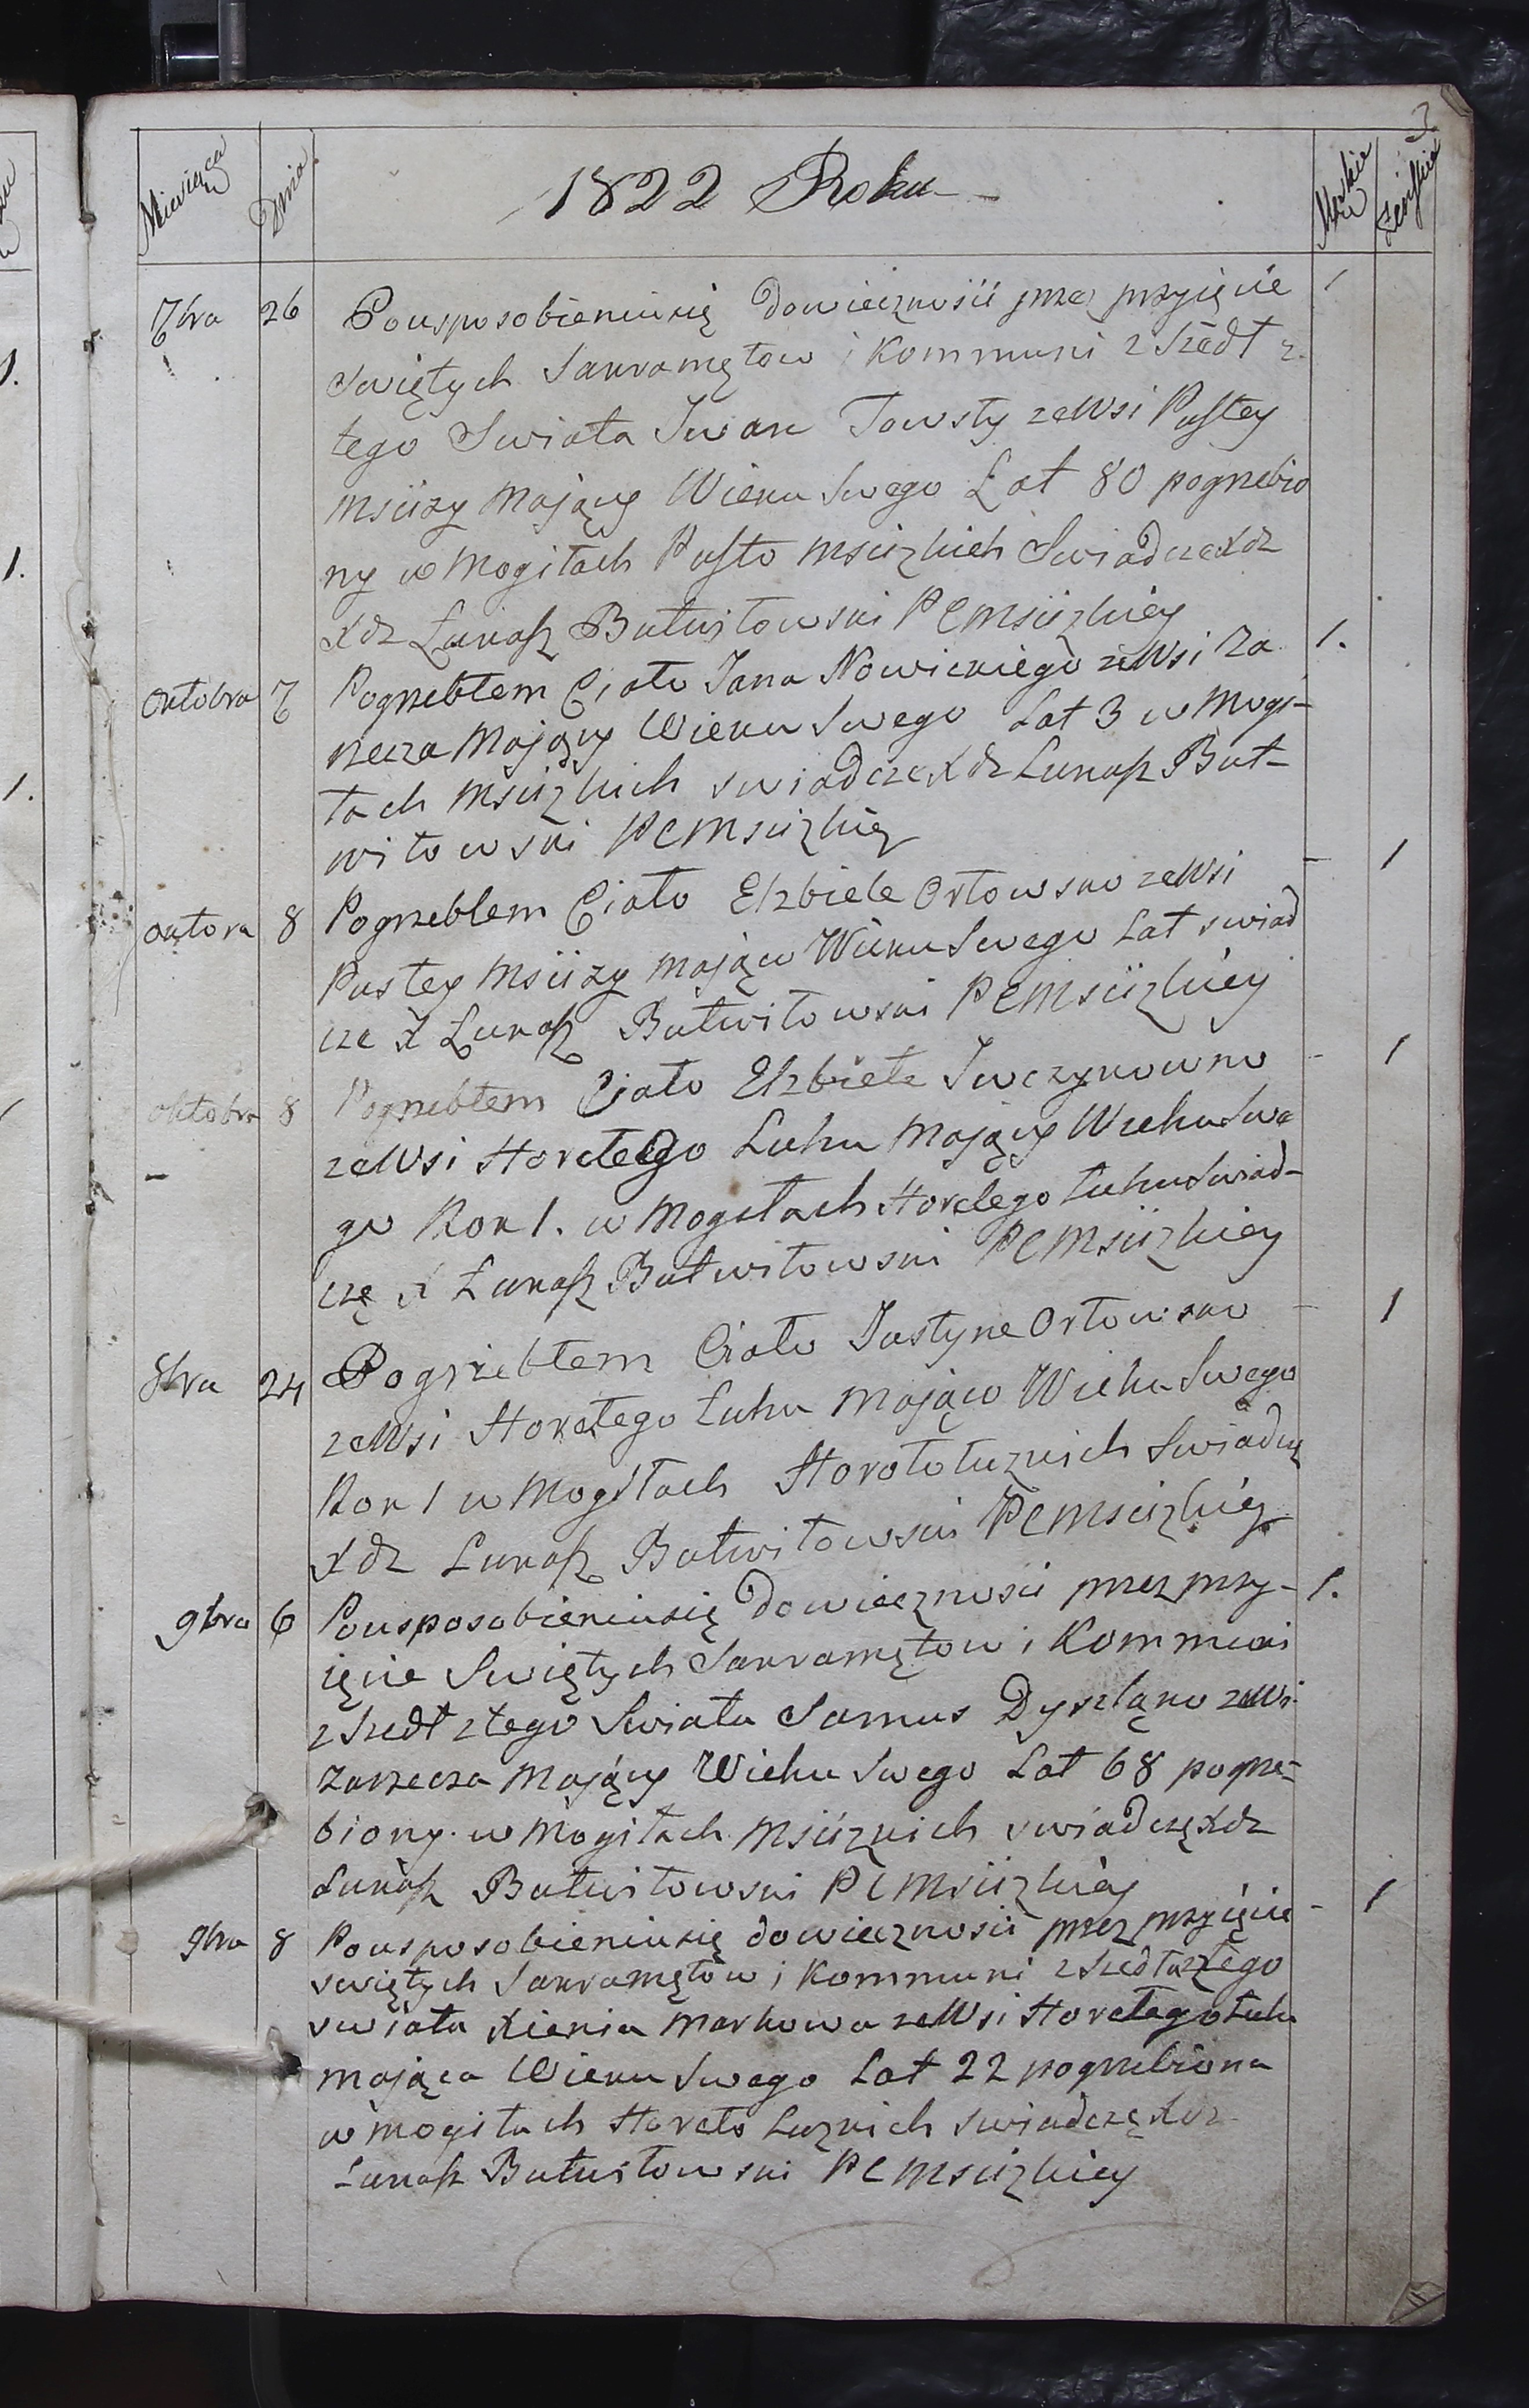 3
Miesiąca Dnia 1822 Roku Męzkie Zeńskie
7bra 26 Pousposobieniusię dowiecznosci przez przyięcie 1
Swiętych Sakramętow i Kommuni zszedł z
tego Swiata Iwan Towsty zeWsi Pustey
Mscizy Maiący Wieku Swego Lat 80 pogrzebio
ny w Mogiłach Pusto Mscizkich Swiadcze Xdz
Xdz Łukasz Butwiłowski P C Mscizkiey
Oktobra 7 Pogrzebłem Ciało Jana Nowickiego zeWsi Za 1.
rzecza Mający Wieku Swego Lat 3 w Mogi-
łach Mscizkich swiadcze Xdz Łukasz But-
wiłowski P C Mscizkiey
oktora 8 Pogrzebłem Ciało Elzbiete Orłowsko zeWsi - 1
Pustey Mscizy mająco Wieku Swego Lat swiad
cze X Łukasz Butwiłowski P C Mscizkiey
oktobra 8 Pogrzebłem Ciało Elzbiete Iwczynowno - 1
zeWsi Horełego Łuhu Mający Wieku Swe
go Rok 1. w Mogiłach Horełego Łuhu Swiad-
czę X Łukasz Butwiłowski P C Mscizkiey
8bra 24 Pogrzebłem Ciało Justyne Orłowsko - 1
zeWsi Horełego Łuhu Mająco Wieku Swego
Rok 1 w Mogiłach Horołołuzkich Swiadczę
Xdz Łukasz Butwiłowski P C Mscizkiey
9bra 6 Pousposobieniusię dowiecznosci przez przy- 1.
ięcie Swiętych Sakramętow i Kommuni
zszedł ztego Swiata Samus Dyszląko zeWsi
Zarzecza Mający Wieku Swego Lat 68 pogrze-
biony w Mogiłach Mscizkich swiadczę Xdz
Łukasz Butwiłowski P C Mscizkiey
9bra 8 Pousposobieniusię dowiecznosci przez przyięcie - 1
swiętych Sakramętow i Kommuni zszedła ztego
swiata Xienia Markowa zeWsi Horełego Łuhu
mająca Wieku Swego Lat 22 pogrzebiona
w mogiłach Horeło Łuzkich swiadczę Xdz
Łukasz Butwiłowski P C Mscizkiey